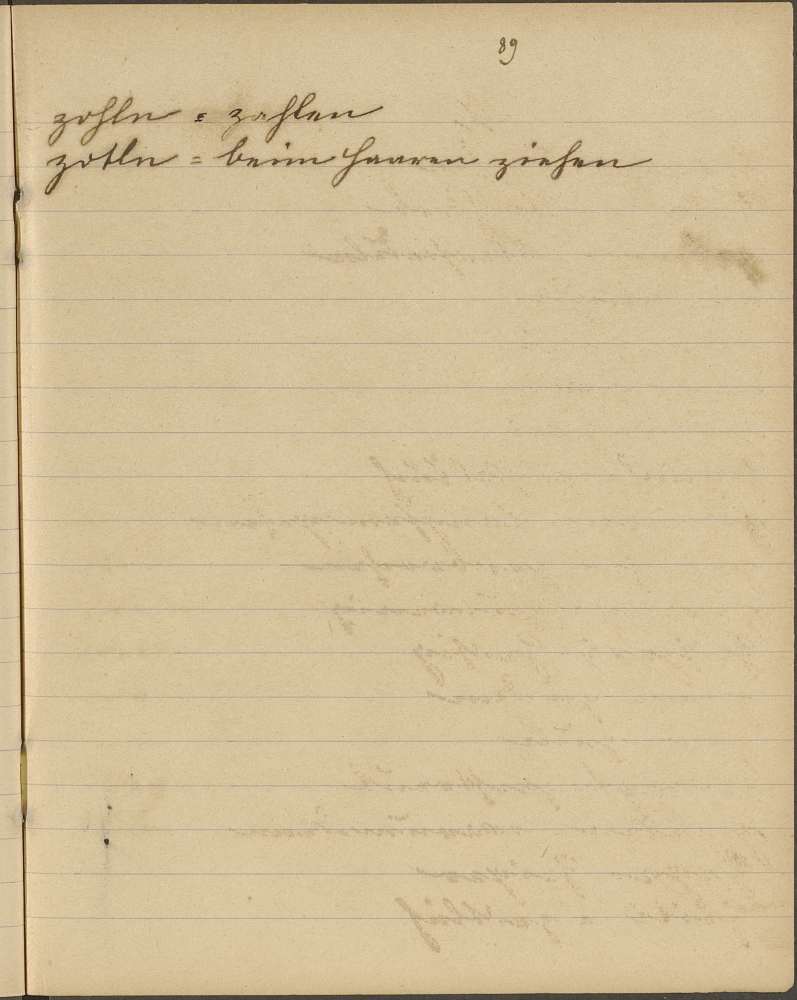 89
zohln = zahlen
zotln = beim Haaren ziehen